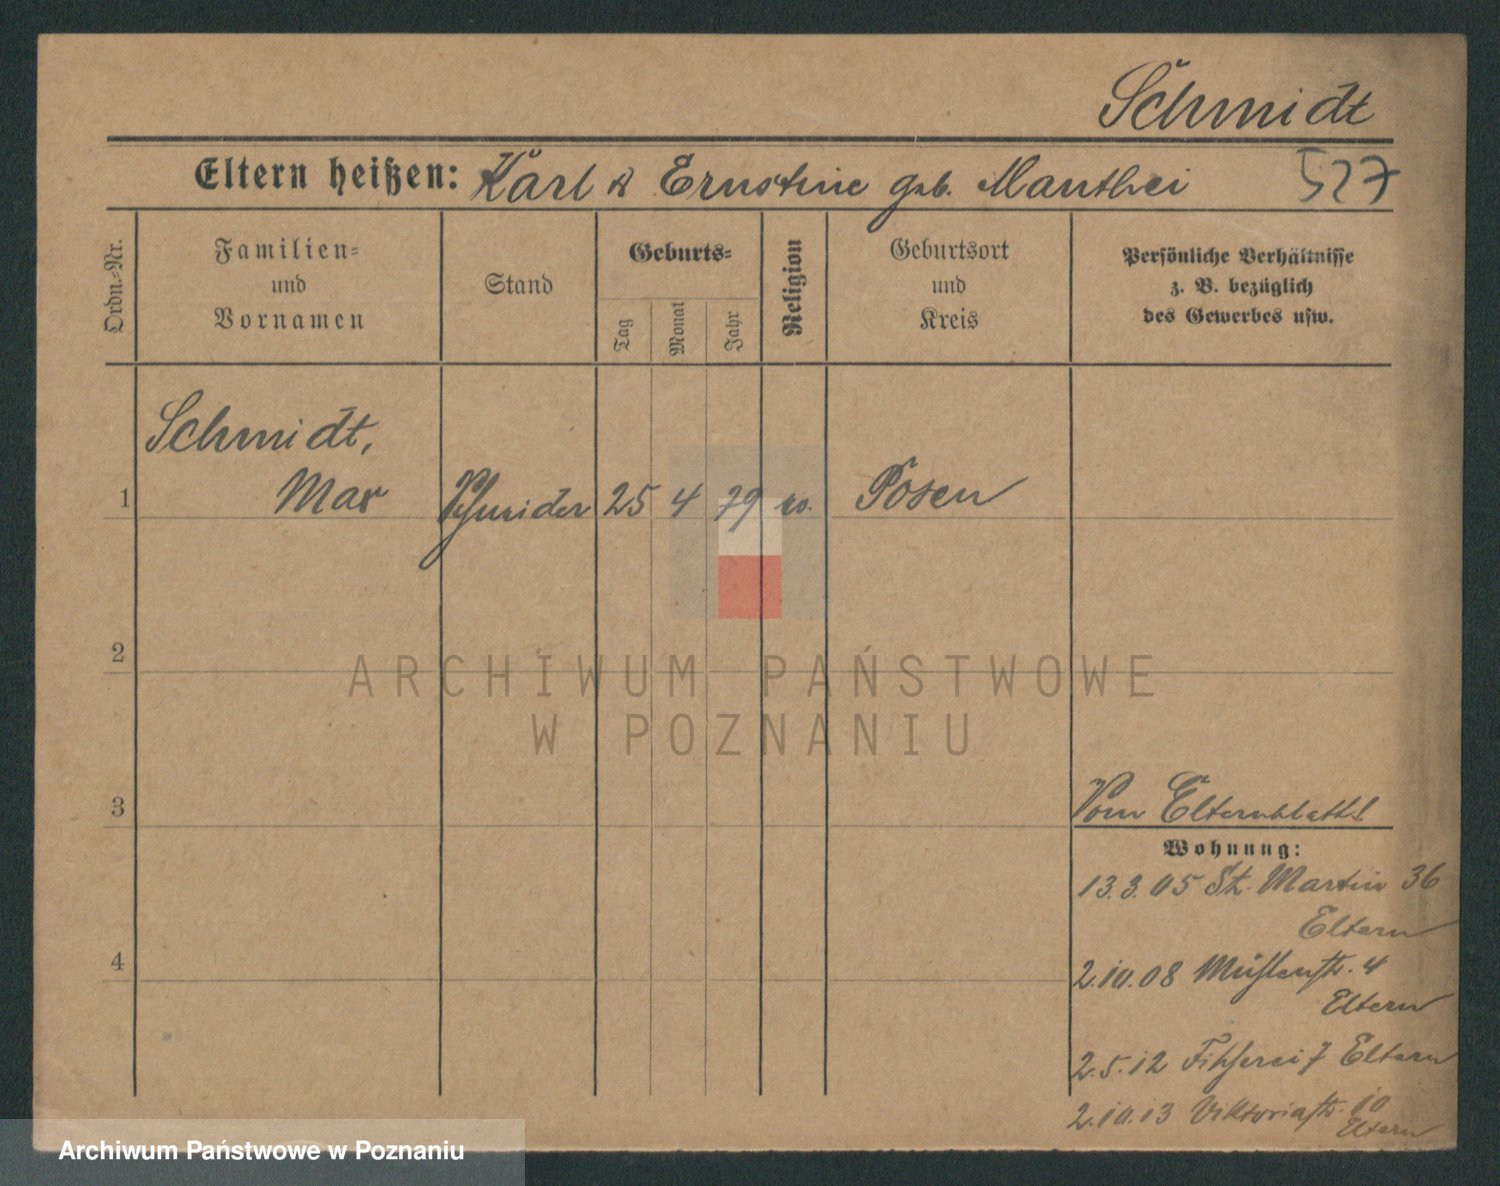 Schmidt
Eltern heißen: Karl & Ernestine geb. Manthei 527
Ordn.=Nr.
Familien=
und
Vornamen
Stand
Geburts=
Tag
Monat
Jahr
Religion
Geburtsort
und
Kreis
Persönliche Verhältnisse
z. B. bezüglich
des Gewerbes usw.
Schmidt,
1 Max Schneider 25 4 79 ev. Posen
2
ARCHIWUM PAŃSTWOWE
W POZNANIU
3
Vom Elternblatt!
Wohnung:
13.3.05 St. Martin 36
Eltern
4
2.10.08 Mühlenstr. 4
Eltern
2.5.12 Fischerei 7 Eltern
2.10.13 Viktoriastr. 10
Eltern
Archiwum Państwowe w Poznaniu